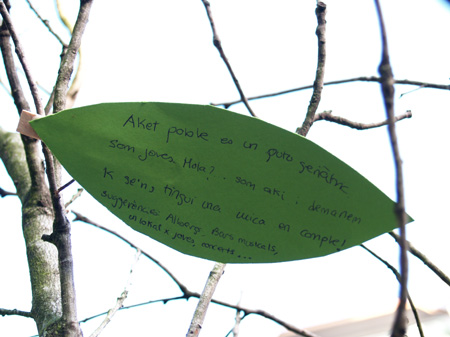 AKET poble es un puto geriàtric
som joves, Hola?. som aki i demanem
K se'ns tingui una mica en compte!
suggerències: Alberg, Bars musicals,
un lokal x joves, concerts...